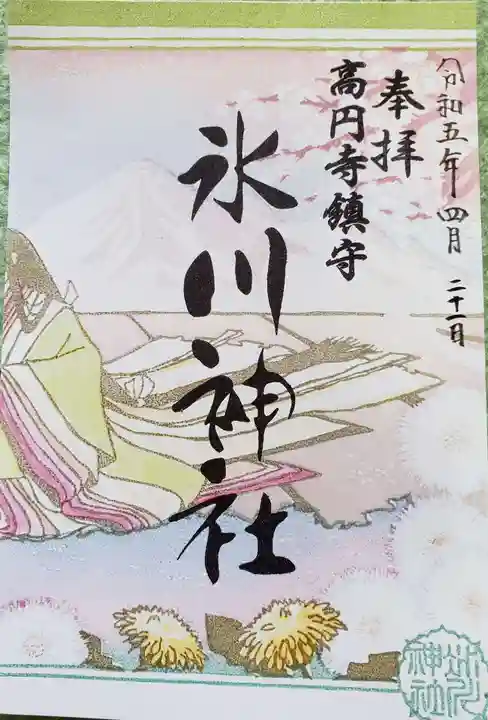 令和五年 四月 二十一日
奉拝
高円寺鎮守
氷川神社
氷川
神社